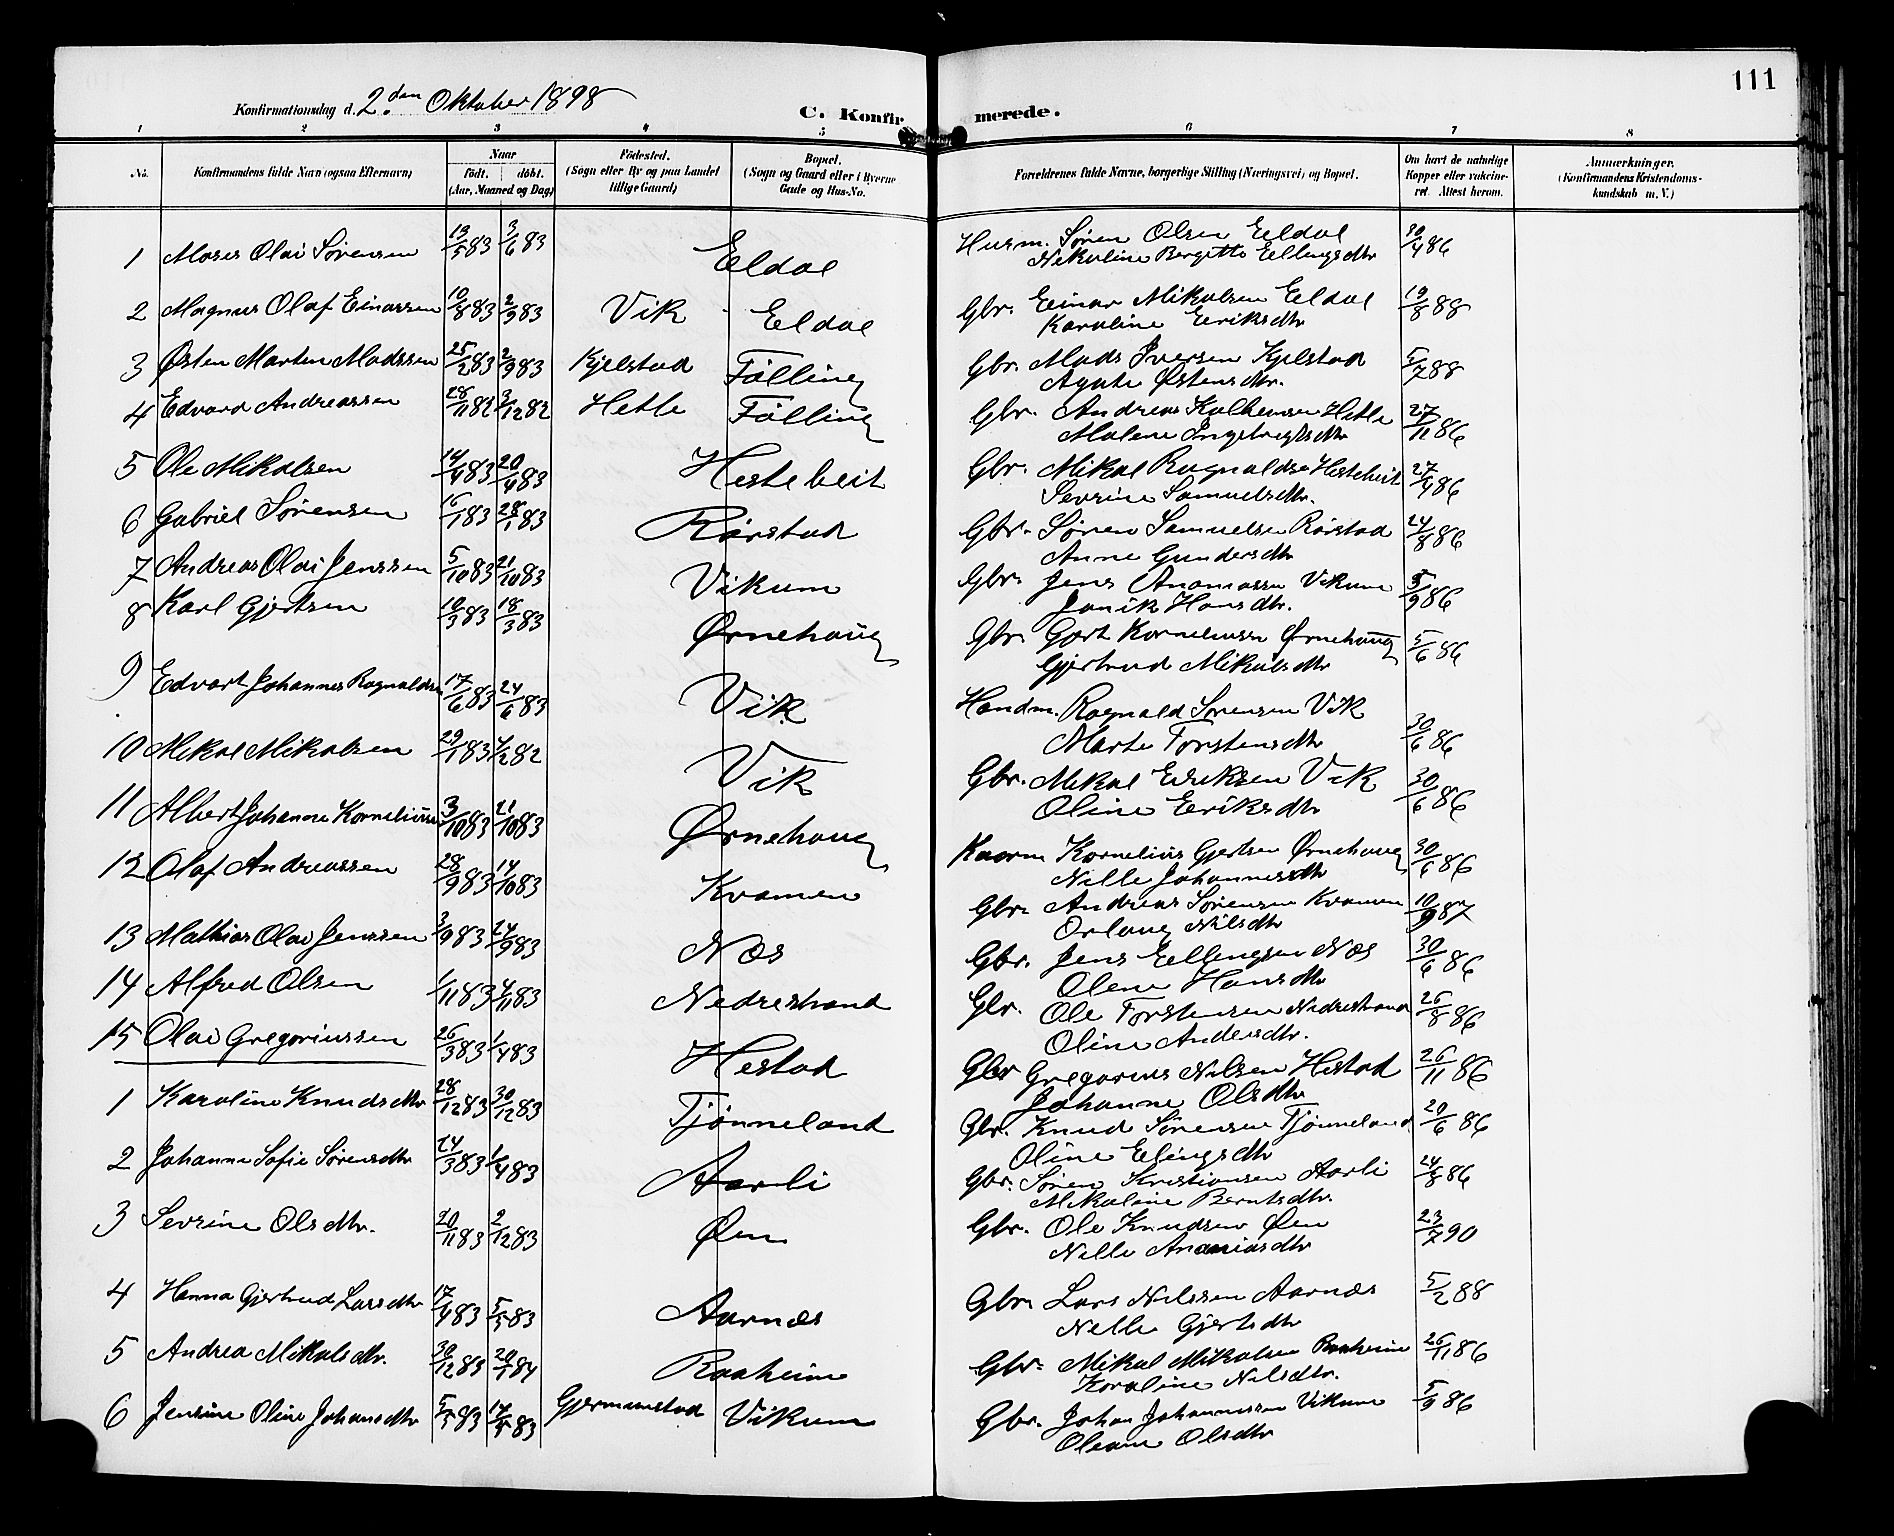 111
Konfirmationsdag d. 2. den Oktober 1898
C. Konfirmerede.
1 2 3 4 5 6 7 8
No. Konfirmandens fulde Navn (ogsaa Efternavn) Naar födt. döbt. (Aar, Maaned og Dag) Födested. (Sogn eller By og paa Landet tillige Gaard) Bopæl. (Sogn og Gaard eller i Byerne Gade og Hus-No. Forældrenes fulde Navne, borgerlige Stilling (Næringsvei) og Bopæl. Om havt de naturlige Kopper eller vakcineret. Attest herom. Anmærkninger. (Konfirmandens Kristendomskundskab m. V.)
1 Moses Olai Sørensen 13/5 83 3/6 83 Eeldal Husm. Søren Olsen Eeldal 30/4 86
Nikoline Bergitte Ellingsdtr
2 Magnus Olaf Einarsen 10/8 83 2/9 83 Vik Eeldal Gbr. Einar Mikalsen Eeldal 19/8 88
Karoline Eeriksdtr
3 Østen Marten Madssen 25/2 83 2/9 83 Kjelstad Fölling Gbr. Mads Iversen Kjelstad 5/7 88
Agate Østensdtr.
4 Edvard Andreassen 28/11 82 3/12 82 Hetle Fölling Gbr. Andreas Hetle 27/11 86
Malene Ingebrigtsdtr
5 Ole Mikalsen 14/4 83 20/4 83 Hestebeit Gbr. Mikal Ragnaldsen Hestebeit 27/4 86
Sevrine Samuelsdtr.
6 Gabriel Sørensen 6/1 83 28/1 83 Rörstad Gbr. Søren Samuelsen Rörstad 24/8 86
Anne Gundersdtr
7 Andreas Olai Jenssen 5/10 83 21/10 83 Vikum Gbr. Jens Ananiassen Vikum 5/9 86
Janik Hansdtr.
8 Karl Gjertsen 10/3 83 18/3 83 Ørnehaug Gbr. Gjert Korneliusen Ørnehaug 5/6 86
Gjertrud Mikalsdtr
9 Edvart Johannes Ragnaldsen 17/6 83 24/6 83 Vik Handm. Ragnald Sørensen Vik 30/6 86
Marte Torstensdtr
10 Mikal Mikalsen 29/1 83 4/2 82 Vik Gbr. Mikal Eeriksen Vik 30/6 86
Oline Eeriksdtr
11 Albert Johannes Korneliusen 3/10 83 21/10 83 Ørnehaug Kaarm Kornelius Gjertsen Ørnehaug 30/6 86
Nille Johannesdtr
12 Olaf Andreassen 28/9 83 14/10 83 Kvamen Gbr. Andreas Sørensen Kvamen 10/9 87
Orlaug Nilsdtr
13 Mathias Olai Jenssen 3/9 83 24/9 83 Næs Gbr. Jens Eellingsen Næs 30/6 86
Olene Hansdtr
14 Alfred Olsen 1/11 83 4/11 83 Nedrestrand Gbr. Ole Torstensen Nedrestrand 26/8 86
Oline Andersdtr.
15 Olai Gregoriussen 26/3 83 1/4 83 Hestad Gbr Gregorius Nilsen Hestad 26/11 86
Johanne Olsdtr
1 Karoline Knudsdtr 28/12 83 30/12 83 Tjönneland Gbr. Knud Sørensen Tjönneland 20/6 86
Oline Elingsdtr
2 Johanne Sofie Sørensdtr 24/3 83 1/4 83 Aarli Gbr. Søren Kristiansen Aarli 24/8 86
Mikaline Berntsdtr.
3 Sevrine Olsdtr. 20/11 83 2/12 83 Øen Gbr. Ole Knudsen Øen 23/7 90
Nille Ananiasdtr
4 Hanna Gjertrud Larsdtr 17/4 83 5/5 83 Aarnæs Gbr. Lars Nilssen Aarnæs 5/2 88
Nelle Gjertsdtr
5 Andrea Mikalsdtr. 30/12 83 20/1 84 Raaheim Gbr. Mikal Mikalsen Raaheim 26/11 86
Karoline Nilsdtr.
6 Jensine Oline Johansdtr 5/5 83 17/5 83 Gjermunstad Vikum Gbr. Johan Johannessen Vikum 5/9 86
Oleane Olsdtr